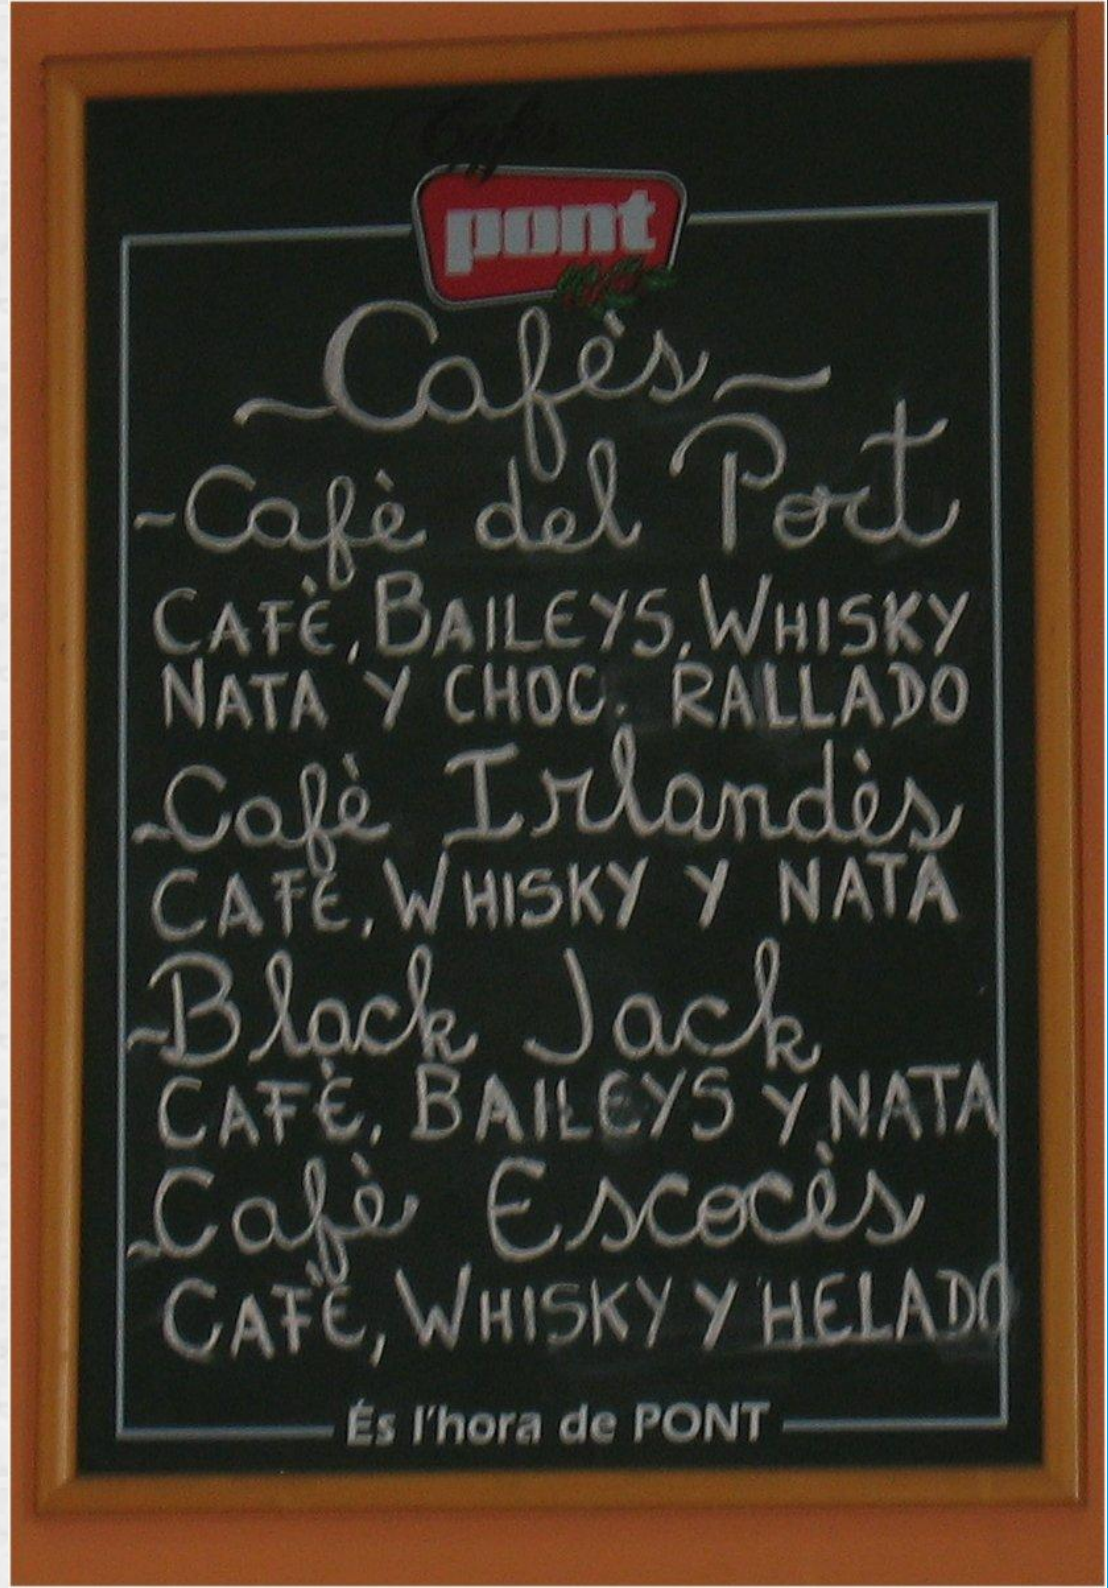 Cafés
pont
~Cafès~
-Cafè del Port
CAFÈ, BAILEYS, WHISKY
NATA Y CHOC. RALLADO
-Cafè Irlandès
CAFÈ, WHISKY Y NATA
-Black Jack
CAFÈ, BAILEYS Y NATA
-Cafè Escocès
CAFÈ, WHISKY Y HELADO
És l'hora de PONT